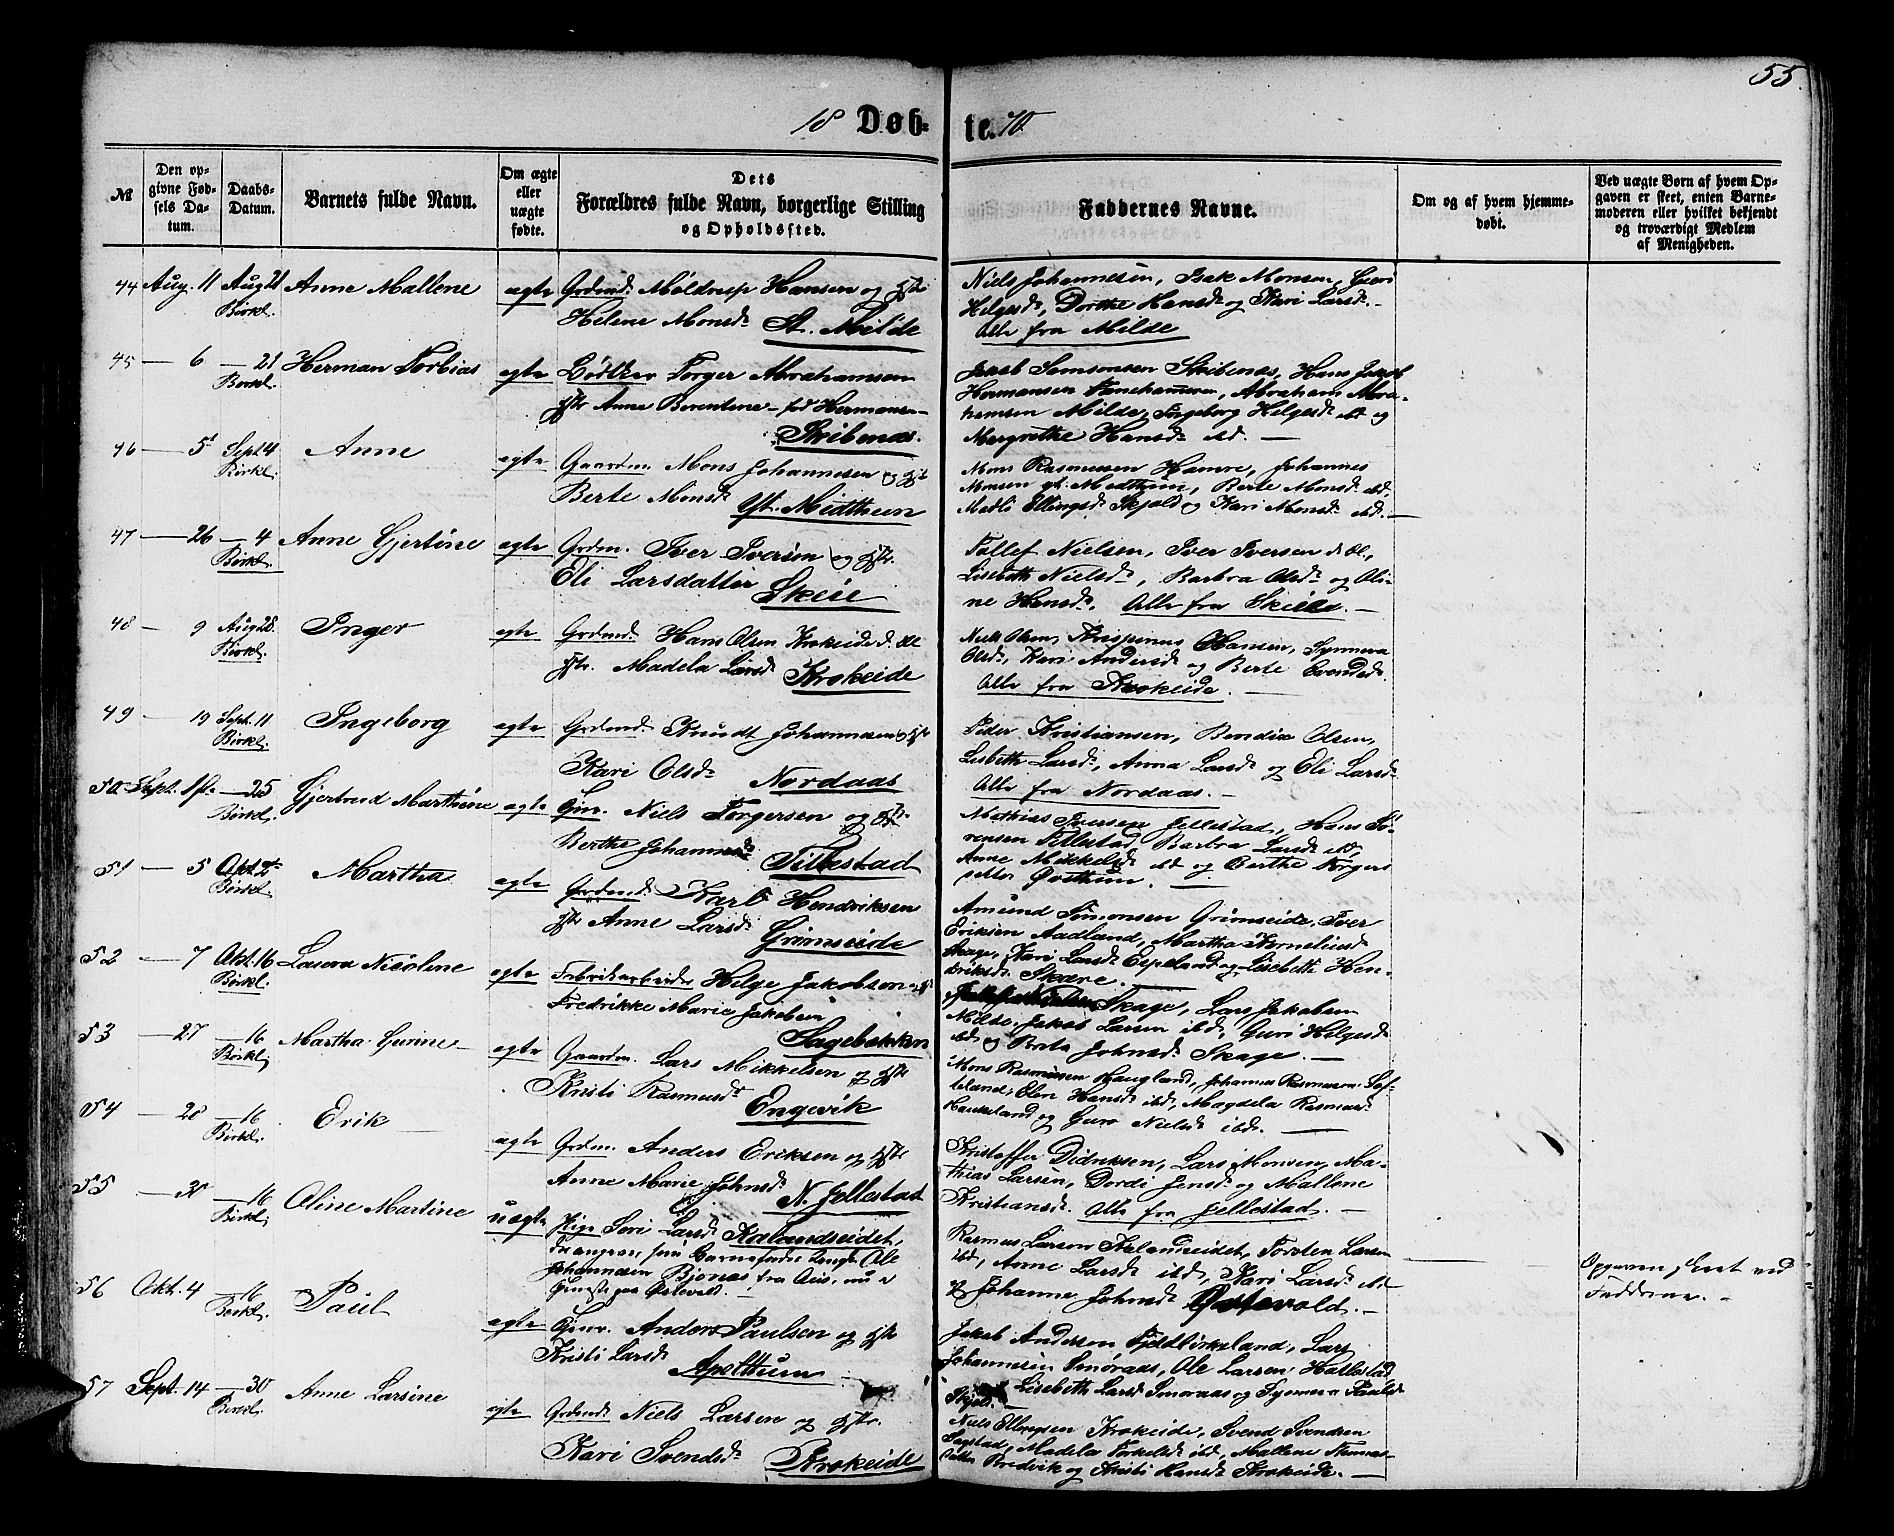 55.
18 Døb=te. 70
№
Den opgivne Fødsels Datum.
Daabs-Datum.
Barnets fulde Navn.
Om ægte eller uægte fødte.
Dets Forældres fulde Navn, borgerlige Stilling og Opholdssted.
Faddernes Navne.
Om og af hvem hjemmedøbt.
Ved uægte Børn af hvem Opgaven er skeet, enten Barnemoderen eller hvilket bekjendt og troværdigt Medlem af Menigheden.
44 Aug. 11 Aug 21 Birkl. Anne Mallene ægte Grdmd. Moldrup Hansen og Hstr
Helene Monsdr St. Milde
Niels Johannesen, Isak Monsen, Guri
Helgesdr, Dorthe Hansdr og Kari Larsdr. —
Alle fra Milde
45 — 6 — 21 Birkl. Herman Torbias ægte Bødtker Torger Abrahamsen
Hstr Anne Berentene — fød Hermansen —
Skibenæs.
Jakob Samsonsen Skibenæs, Hans Jakob
Hermansen Fanehammer, Abraham Abrahamsen Milde, Ingeborg Helgesdr ibd og
Margrethe Hansdr ibd. —
46 — 5 Sept. 4 Birkl. Anne ægte Gaardm. Mons Johannesen og Hstr
Berte Monsdr Yt. Midthun
Mons Rasmussen Hamre, Johannes
Monsen yt. Midthun, Berte Monsdr ibd,
Madli Ellingsdr Skjold og Kari Monsdr ibd. —
47 — 26 — 4 Birkl. Anne Gjertine ægte Grdm. Iver Iversen og Hstr.
Eli Larsdatter Skeie
Tollef Nielsen, Iver Iversen d. æl.,
Lisebeth Nielsdr, Barbra Olsdr og Oline Hansdr. Alle fra Skeie. —
48 — 9 Aug 28. Birkl. Inger ægte Grdmd. Hans Olsen Krokeide d. æl
Hstr. Madela Larsdr Krokeide
Niels Olsen, Krispenus Hansen, Synneva
Olsdr, Kari Andersdr og Berte Svendsdr.
Alle fra Krokeide. —
49 — 19 Sept. 11 Birkl. Ingeborg ægte Grdmd. Knudt Johannesen og Hstr
Kari Olsdr Nordaas
Peder Kristiansen, Bendix Olsen,
Lisbeth Larsdr, Anna Larsdr og Eli Larsdr
Alle fra Nordaas. —
50 Sept. 1ste — 25 Birkl. Gjertrud Marthine ægte Gmr. Niels Torgersen og Hstr.
Berthe Johannesdr Fillestad
Mathias Iversen Jellestad, Hans Sørensen Fillestad, Barbra Larsdr ibd,
Anne Mikkelsdr ibd og Berthe Torgersdatter Øvsthun. —
51 — 5 Okt. 2den Birkl. Martha ægte Grdmd. Karl Hendriksen
Hstr Anne Larsdr Grimseide
Amund Simonsen Grimseide, Iver
Eriksen Aadland, Martha Korneliusdr
Skage, Kari Larsdr Espeland og Lisebette Hendriksdr. Skare. —
52 — 7 Okt. 16 Birkl. Laura Nicoline ægte Fabrikarbeider Helge Jakobsen og Hst
Fredrikke Marie Jakobsen
Sagebakken
Skage, Lars Jakobsen
Milde, Jakob Larsen ibd, Guri Helgesdr
ibd og Brita Johnsdr Skage. —
53 — 27 — 16 Birkl. Martha Gurine — ægte Gaardm. Lars Mikkelsen og Hstr
Kristi Rasmusdr Engevik
Mons Rasmussen Haugland, Johannes Rasmussen Søfteland, Elen Hansdr ibd, Magdela Rasmusdr
Haukeland og Guro Nielsdr ibd. —
54 — 28 — 16 Birkl. Erik — ægte Grdm. Anders Eriksen og Hstr
Anne Marie Johnsdr N. Jellestad
Kristoffer Didriksen, Lars Monsen, Mathias Larsen, Dordi Jensdr og Mallene
Kristiansdr. Alle fra Jellestad. —
55 — 30 — 16 Birkl. Oline Martine uægte Pige Siri Larsdr Kalandseidet,
der angav, som Barnefader Ungk. Ole
Johannesen Bjønæs fra Aus, nu i
Tjeneste paa Østevold. —
Rasmus Larsen Kalandseidet, Torsten Larsen
ibd, Anne Larsdr ibd, Kari Larsdr ibd
og Johanne Johnsdr Østevold. —
Opgaven skeet ved
Fadderne. —
56 Okt. 4 — 16 Birkl. Paul ægte Gmr. Anders Paulsen og Hstr
Kristi Larsdr Apelthun
Jakob Andersen Fjeldbirkeland, Lars
Johannesen Smøraas, Ole Larsen Hallestad,
Lisebeth Larsdr Smøraas og Synneva Paulsdr
Skjold. —
57 Sept. 14 — 30 Birkl. Anne Larsine ægte Grdmd. Niels Larsen og Hstr.
Kari Svendsdr Krokeide
Niels Ellingsen Krokeide, Svend Svendsen
Lagstad, Madela Torkelsdr ibd, Mallene Thomasdatter Bredvik og Kristi Hansdr Krokeide. —